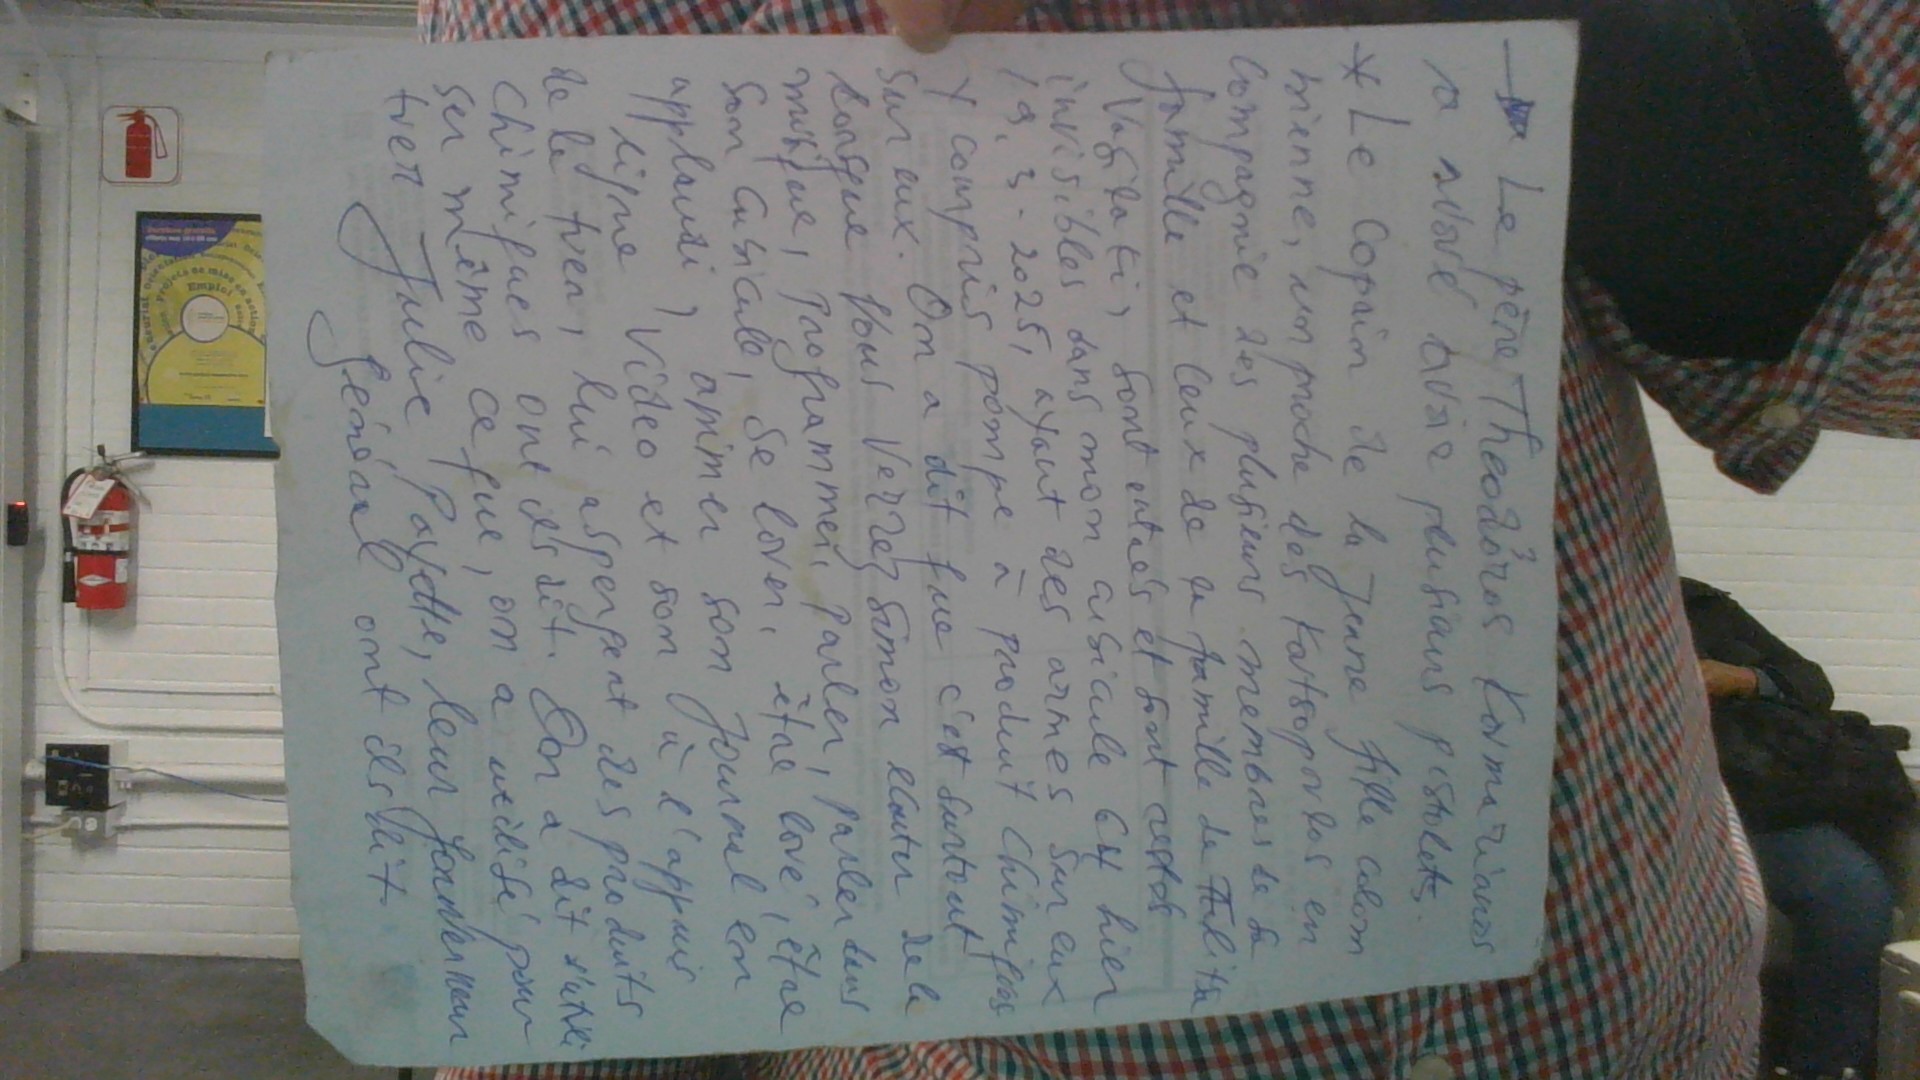 → Le père Theodóros Kormazianos
a volé aussi plusieurs pistolets.
* Le copain de la jeune fille colom
bienne, un proche des Katsoprlas en
Compagnie des plusieurs membres de sa
famille et ceux de la famille de Filitsa
Vagdati, sont entrés et sont restés
invisibles dans mon cubicule 64 hier
19.3-2025, ayant des armes sur eux
y compris pompe à produit Chimiques
sur eux. On a dit que c'est surtout
lorsque vous verrez Simon écouter de la
musique, Programmer, parler, parler dans
son cubicule, se lover, être lové, être
applaudi, animer son journal en
ligne, Video et son à l'appuis
de le tuer, lui aspergent des produits
chimiques ont ils dit. On a dit
ser même ce que, on a utilisé pour
tuer Julie Payette, leur Gouverneur
Général ont ils dit.
Emploi